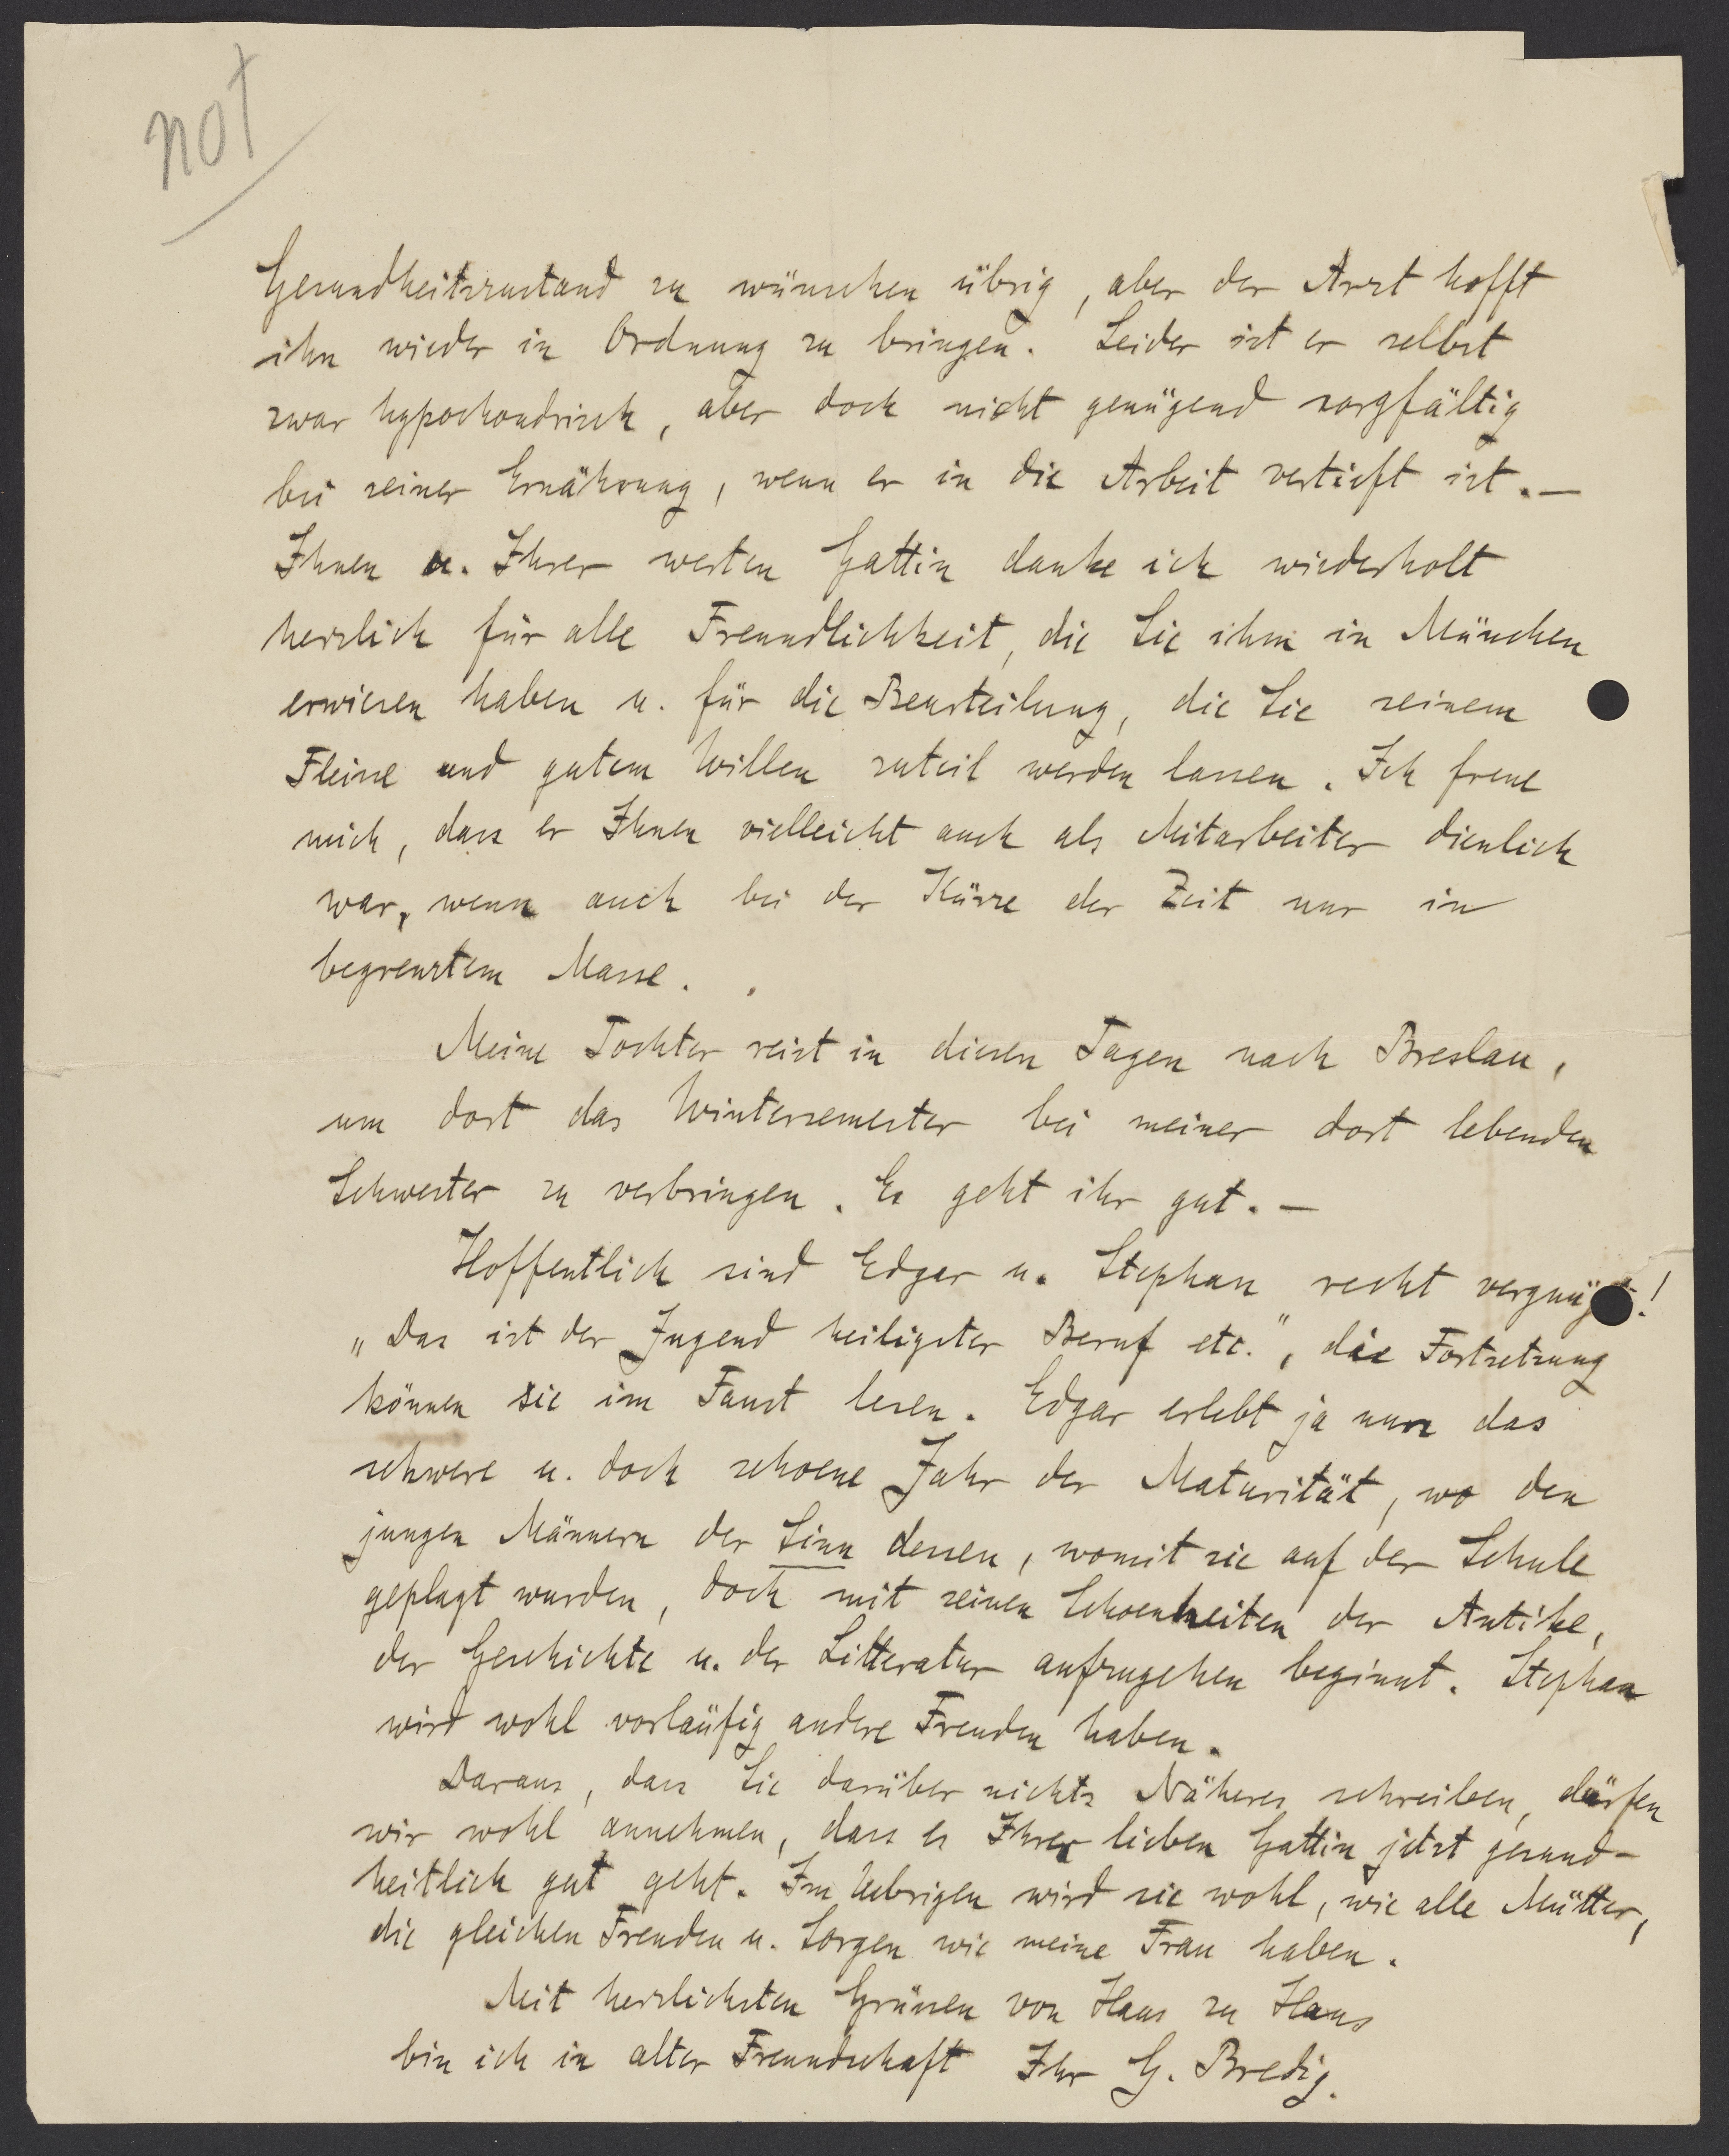 not
Gesundheitszustand zu wünschen übrig, aber der Arzt hofft
ihn wieder in Ordnung zu bringen. Leider ist er selbst
zwar hypochondrisch, aber doch nicht genügend sorgfältig
bei seiner Ernährung, wenn er in die Arbeit vertieft ist. —
Ihnen u. Ihrer werten Gattin danke ich wiederholt
herzlich für alle Freundlichkeit, die Sie ihm in München
erwiesen haben u. für die Beurteilung, die Sie seinem
Fleisse und gutem Willen zuteil werden lassen. Ich freue
mich, dass er Ihnen vielleicht auch als Mitarbeiter dienlich
war, wenn auch bei der Kürze der Zeit nur in
begrenztem Masse.
Meine Tochter reist in diesen Tagen nach Breslau,
um dort das Wintersemester bei meiner dort lebenden
Schwester zu verbringen. Es geht ihr gut. —
Hoffentlich sind Edgar u. Stephan recht vergnügt!
„Das ist der Jugend heiligster Beruf etc.", die Fortsetzung
können sie im Faust lesen. Edgar erlebt ja nun das
schwere u. doch schoene Jahr der Maturität, wo den
jungen Männern der Sinn dessen, womit sie auf der Schule
geplagt wurden, doch mit seinen Schoenheiten der Antike,
der Geschichte u. der Litteratur aufzugehen beginnt. Stephan
wird wohl vorläufig andere Freuden haben.
Daraus, dass Sie darüber nichts Näheres schreiben, dürfen
wir wohl annehmen, dass es Ihrer lieben Gattin jetzt gesund-
heitlich gut geht. Im Uebrigen wird sie wohl, wie alle Mütter,
die gleichen Freuden u. Sorgen wie meine Frau haben.
Mit herzlichsten Grüssen von Haus zu Haus
bin ich in alter Freundschaft Ihr G. Bredig.